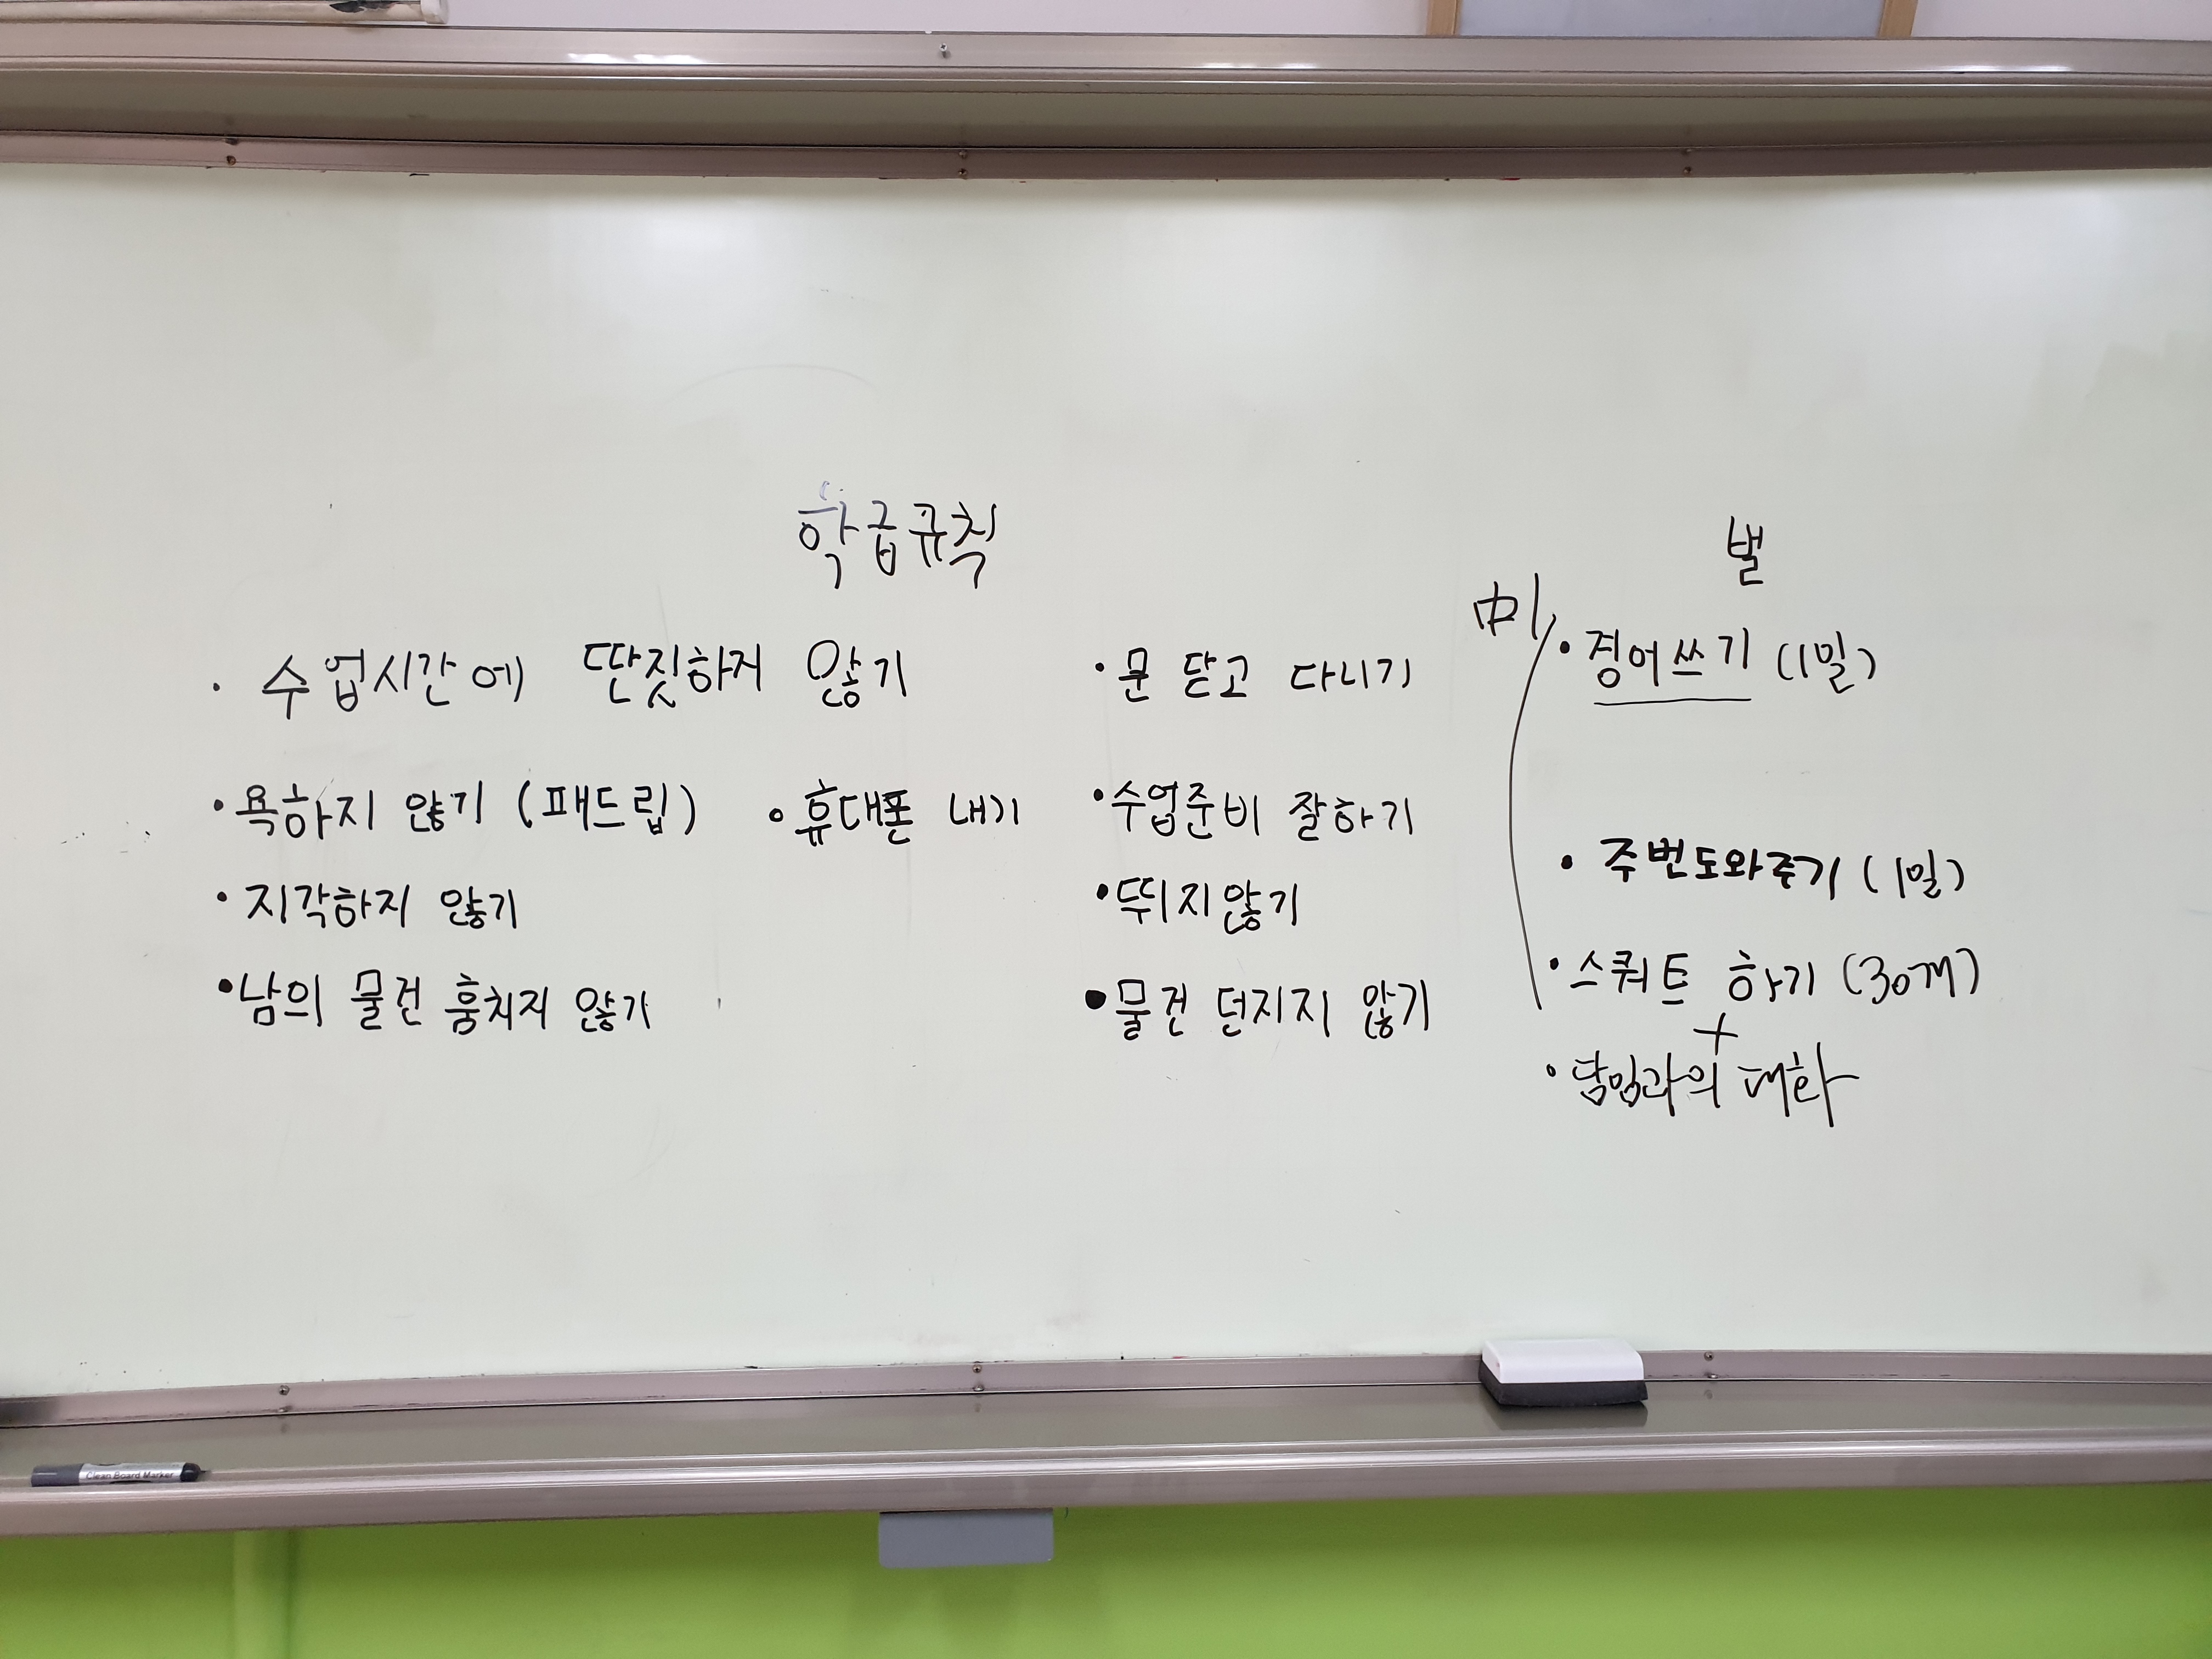 학급규칙
· 수업시간에 딴짓하지 않기
· 욕하지 않기 (패드립)
· 휴대폰 내기
· 지각하지 않기
· 남의 물건 훔치지 않기
· 문 닫고 다니기
· 수업준비 잘하기
· 뛰지않기
· 물건 던지지 않기
벌
中1
· 경어쓰기 (1일)
· 주번도와주기 (1일)
· 스쿼트 하기 (30개)
+
· 담임과의 대화
Clean Board Marker